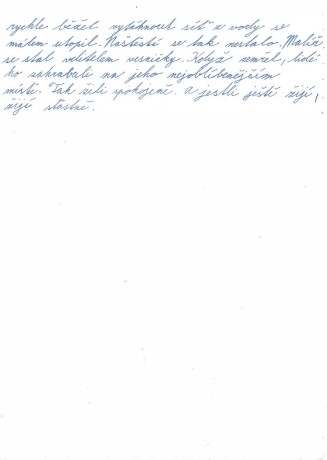 rychle běžel vytáhnout síť z vody se
málem utopil. Naštěstí se tak nestalo. Malíř
se stal velitelem vesničky. Když zemřel, lidé
ho zahrabali na jeho nejoblíbenějším
místě. Tak žili spokojeně. A jestli ještě žijí,
žijí šťastně.